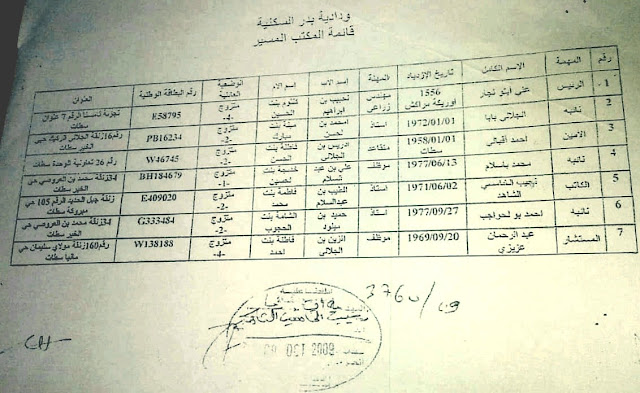 ودادية بدر السكنية
قائمة المكتب المسير
رقم المهمة الإسم الكامل تاريخ الإزدياد المهنة اسم الأب اسم الأم الوضعية العائلية رقم البطاقة الوطنية العنوان
1 الرئيس علي أيتو نجار 1556 أوريكة مراكش مهندس زراعي لحبيب بن ابراهيم كلثوم بنت الحسين متزوج -4- E58795 تجزئة الرقم 7 عنوان سطات
2 نائبه الجلالي بابا 1972/01/01 استاذ امحمد بن لحسن بنت مبارك متزوج -2- PB16234 رقم 16 زنقة الجلالي حي الخير سطات
3 الأمين احمد أقبالي 1958/01/01 سطات متقاعد ادريس بن الجلالي فاطنة بنت الحسن متزوج -2- W46745 رقم 26 تعاونية الوحدة سطات
4 نائبه محمد باسلام 1977/06/13 موظف علي بن عبد السلام خديجة بنت لحسين متزوج -1- BH184679 34 زنقة محمد بن العروصي حي الخير سطات
5 الكاتب نجيب الشاهد 1971/06/02 استاذ الطيب بن عبدالسلام فاطمة بنت محمد متزوج -2- E409020 زنقة جبل الحديد الرقم 105 حي مبروكة سطات
6 نائبه احمد بولحواجب 1977/09/27 استاذ حميد بن ميلود الشامة بنت المحجوب متزوج -2- G333484 34 زنقة محمد بن العروصي حي الخير سطات
7 المستشار عبد الرحمان عزيزي 1969/09/20 موظف الزين بن الجلالي فاطنة بنت احمد متزوج -4- W138188 رقم 160 زنقة مولاي سليمان حي ماليا سطات
3760/09
OCT 2009